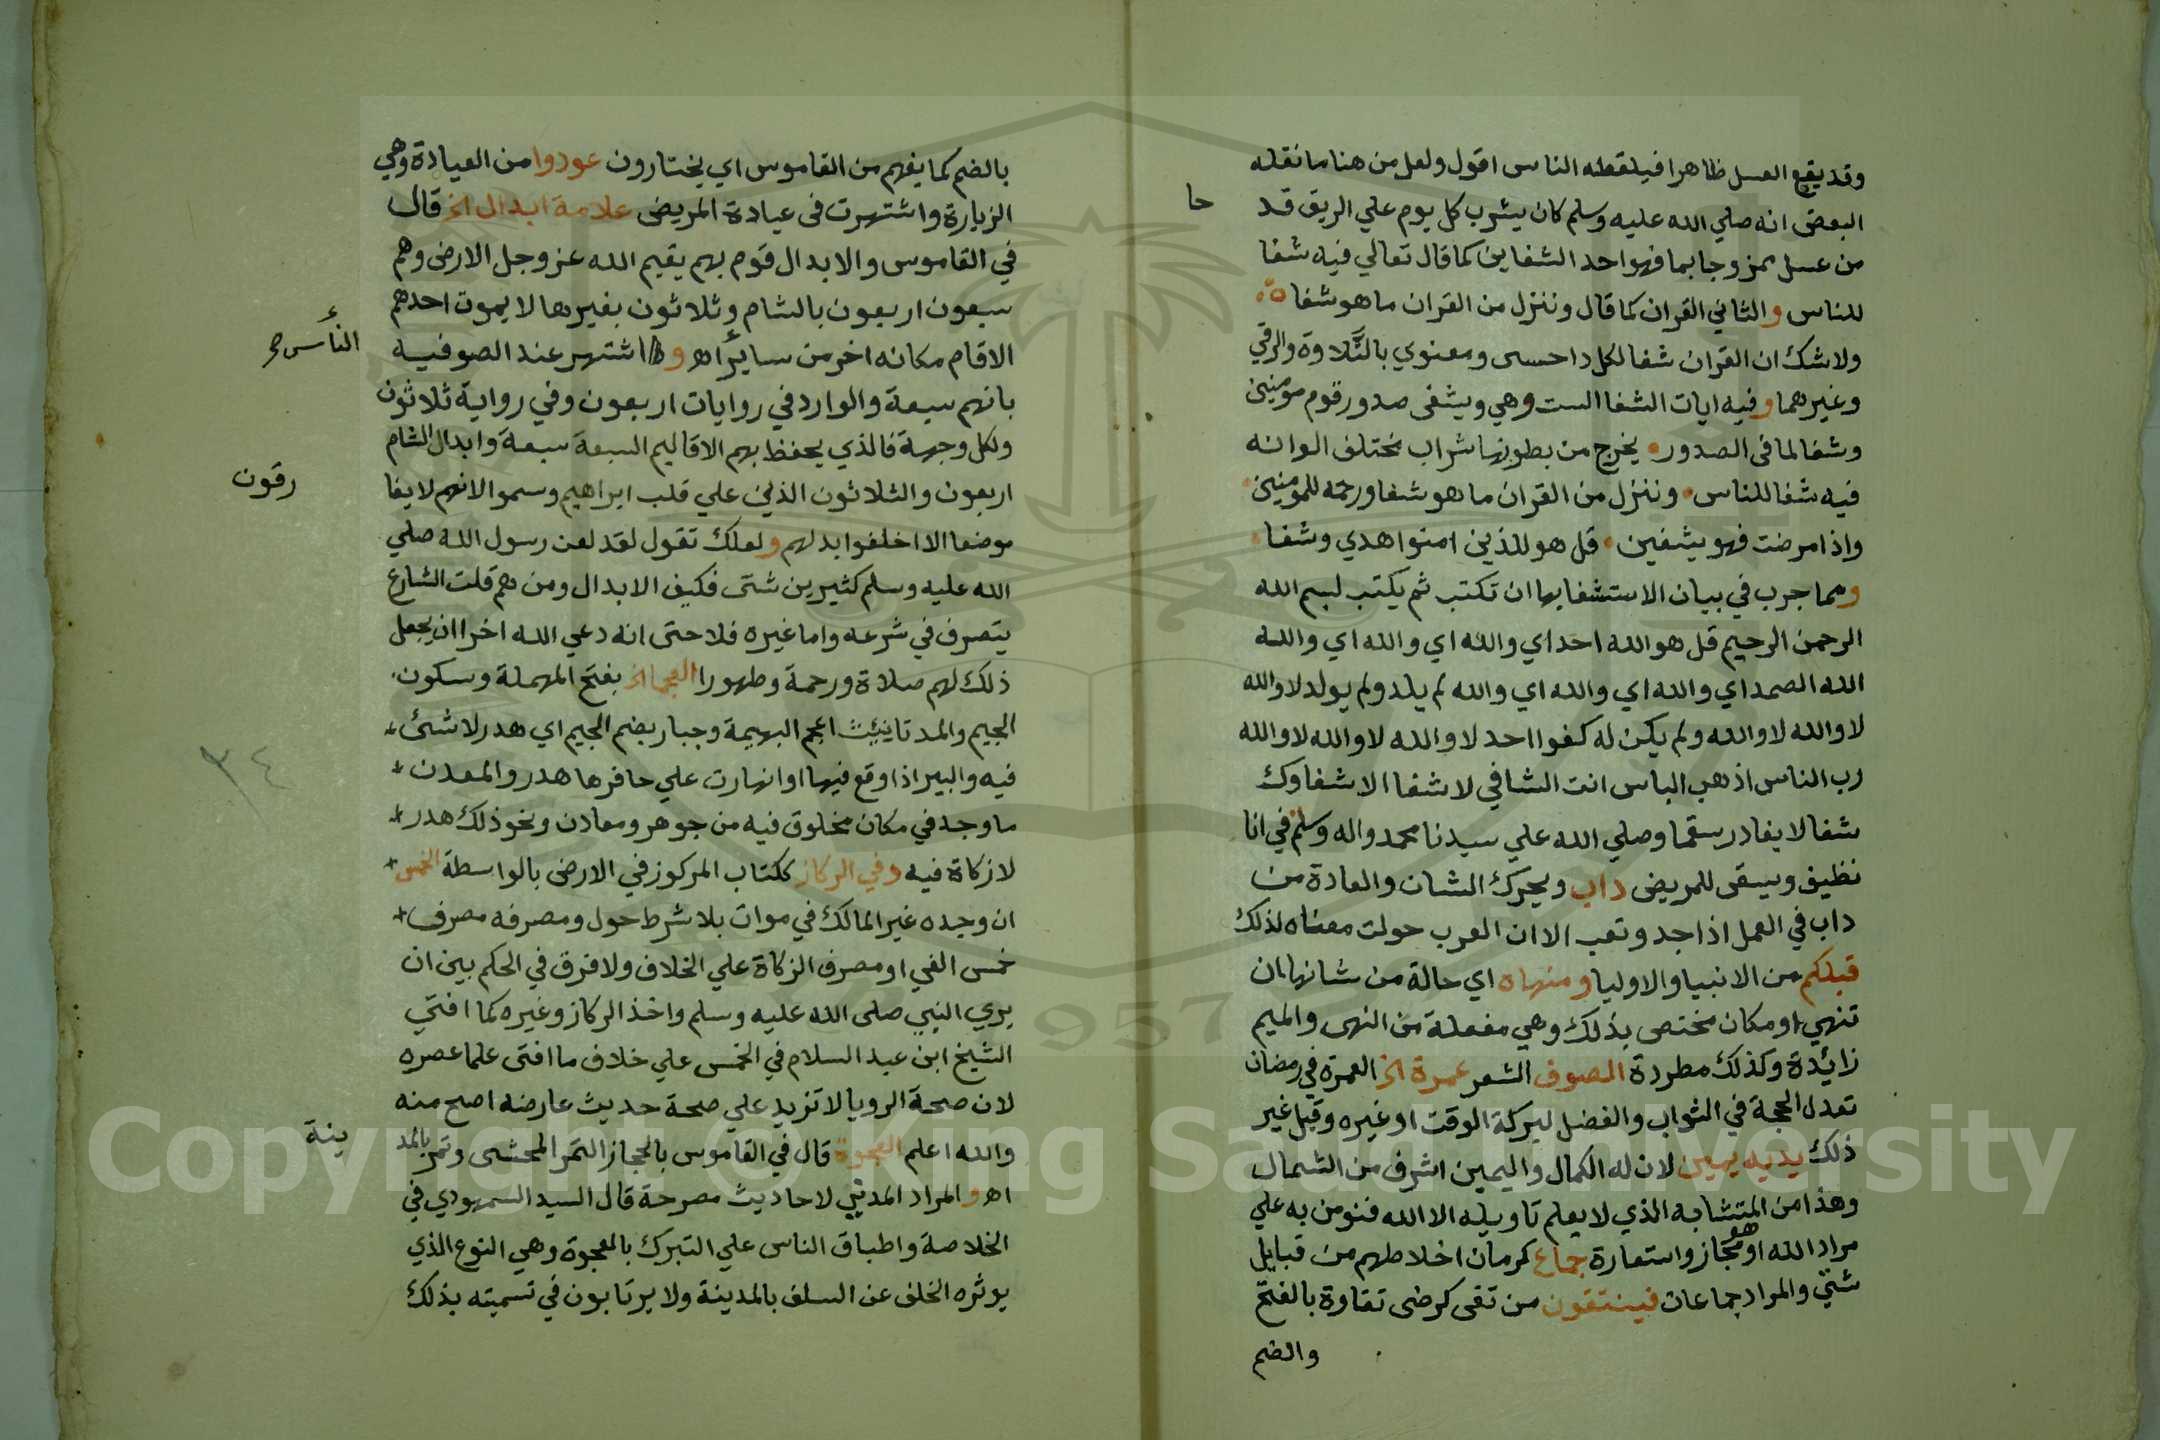 وقد يقع العسل ظاهرا فيلقطه الناس اقول ولعل من هنا ما نقله
البعض انه صلي الله عليه وسلم كان يشرب كل يوم علي الريق قد
حا
من عسل ممزوجا بما فهو احد الشفاين كما قال تعالي فيه شفا
للناس والثاني القران كما قال وننزل من القران ما هو شفا
ولا شك ان القران شفا لكل دا حسى ومعنوي بالتلاوة والرقي
وغيرهما وفيه ايات الشفا الست وهي ويشفى صدور قوم مومنين
وشفا لما فى الصدور يخرج من بطونها شراب مختلف الوانه
فيه شفا للناس وننزل من القران ما هو شفا ورحمة للمومنين
واذا مرضت فهو يشفين قل هو للذين امنوا هدي وشفا
ومما جرب في بيان الاستشفا بها ان تكتب ثم يكتب لبسم الله
الرحمن الرحيم قل هو الله احد اي والله اي والله اي والله
الله الصمد اي والله اي والله اي والله لم يلد ولم يولد لا والله
لا والله لا والله ولم يكن له كفوا احد لا والله لا والله لا والله
رب الناس اذهب الباس انت الشافي لا شفا الا شفاوك
شفا لا يغادر سقما وصلي الله علي سيدنا محمد واله وسلم في انا
نظيف ويسقى للمريض داب ويحرك الشان والعادة من
داب في العمل اذا جد وتعب الا ان العرب حولت معناه لذلك
قبلكم من الانبيا والاوليا ومنهاه اي حالة من شانها ان
تنهي او مكان مختص بذلك وهي مفعلة من النهى والميم
زائدة وكذلك مطردة الصوف الشعر عمرة الخ العمرة في رمضان
تعدل الحجة في الثواب والفضل لبركة الوقت او غيره وقيل غير
ذلك يديه يمين لان له الكمال واليمين اشرف من الشمال
وهذا من المتشابه الذي لا يعلم تاويله الا الله فنومن به علي
مراد الله او هو مجاز واستعارة جماع كرمان اخلاطهم من قبايل
شتي والمراد جماعات فينتقون من تقى كرضى تقاوة بالفتح
والضم
بالضم كما يفهم من القاموس اي يختارون عودوا من العيادة وهي
الزيارة واشتهرت في عيادة المريض علامة ابدال الخ قال
في القاموس والابدال قوم بهم يقيم الله عز وجل الارض وهم
سبعون اربعون بالشام وثلاثون بغيرها لا يموت احدهم
الا قام مكانه اخر من ساير اهـ و اشتهر عند الصوفية
الناس صح
بانهم سبعة والوارد في روايات اربعون وفي رواية ثلاثون
ولكل وجهة فالذي يحفظ بهم الاقاليم السبعة سبعة وابدال الشام
اربعون والثلاثون الذين علي قلب ابراهيم وسموا لانهم لا يفا
رقون
موضعا الا اخلفوا بدلهم ولعلك تقول لقد لعن رسول الله صلي
الله عليه وسلم كثيرين شتى فكيف الابدال ومن هم قلت الشارع
يتصرف في شرعه واما غيره فلا حتى انه دعي الله اخرا ان يجعل
ذلك لهم صلاة ورحمة وطهورا العجما الخ بفتح المهملة وسكون
الجيم والمد تانيث اعجم البهيمة وجبار بضم الجيم اي هدر لا شئ
فيه والبير اذا وقع فيها او انهارت علي حافرها هدر والمعدن
٣٤
ما وجد في مكان مخلوق فيه من جوهر ومعادن ونحو ذلك هدر
لا زكاة فيه وفي الركاز ككتاب المركوز في الارض بالواسطة الخمس
ان وجده غير المالك في موات بلا شرط حول ومصرفه مصرف
خمس الفي او مصرف الزكاة علي الخلاف ولا فرق في الحكم بين ان
يري النبي صلى الله عليه وسلم واخذ الركاز وغيره كما افتي
الشيخ ابن عبد السلام في الخمس علي خلاف ما افتى علما عصره
لان صحة الرويا لا تزيد علي صحة حديث عارضه اصح منه
والله اعلم العجوة قال في القاموس بالحجاز التمر المحشى وتمر بالمد
ينة
اهـ والمراد المدني لاحاديث مصرحة قال السيد السمهودي في
الخلاصة واطباق الناس علي التبرك بالعجوة وهي النوع الذي
يوثره الخلف عن السلف بالمدينة ولا يرتابون في تسميته بذلك
1957
Copyright © King Saud University